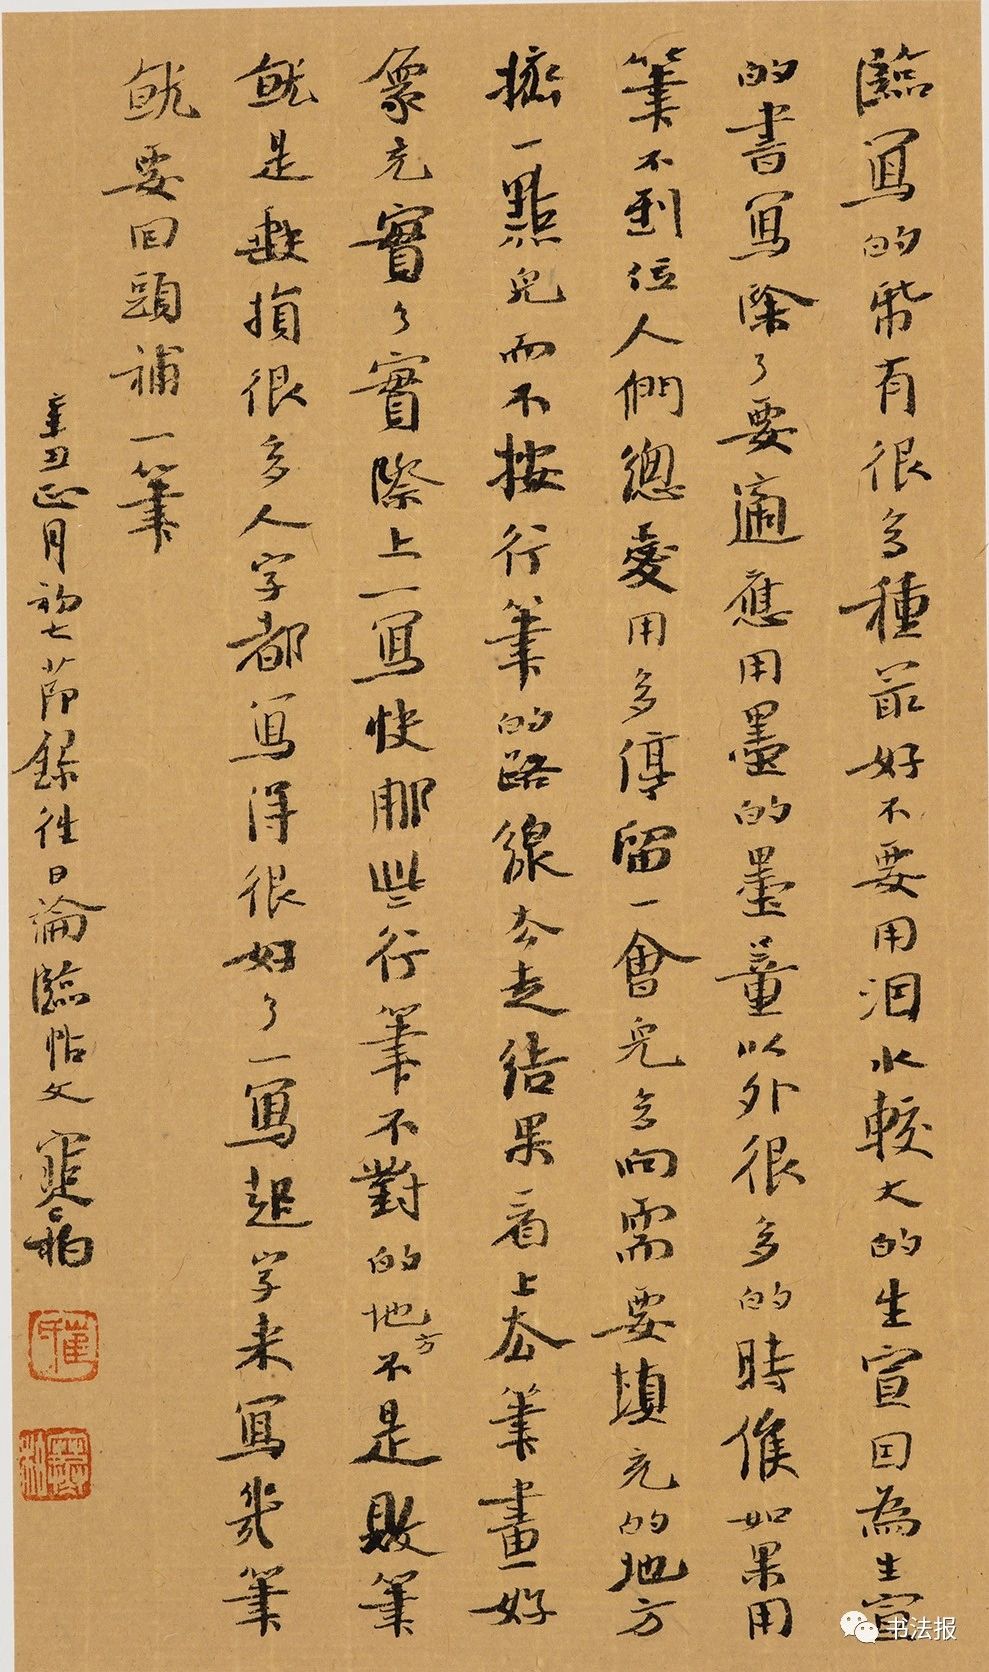 臨寫的紙有很多種最好不要用洇水較大的生宣因為生宣
的書寫除了要適應用墨的墨量以外很多的時候如果用
筆不到位人們總愛用多停留一會兒多向需要填充的地方
挤一點兒而不按行筆的路線去走結果看上去筆畫好
象充實了實際上一寫快那些行筆不對的地方不是敗筆
就是缺損很多人字都寫得很好了一寫起字来寫幾筆
就要回頭補一筆
辛丑正月初七節錄往日論臨帖文 寒柏
崔
寒柏
书法报